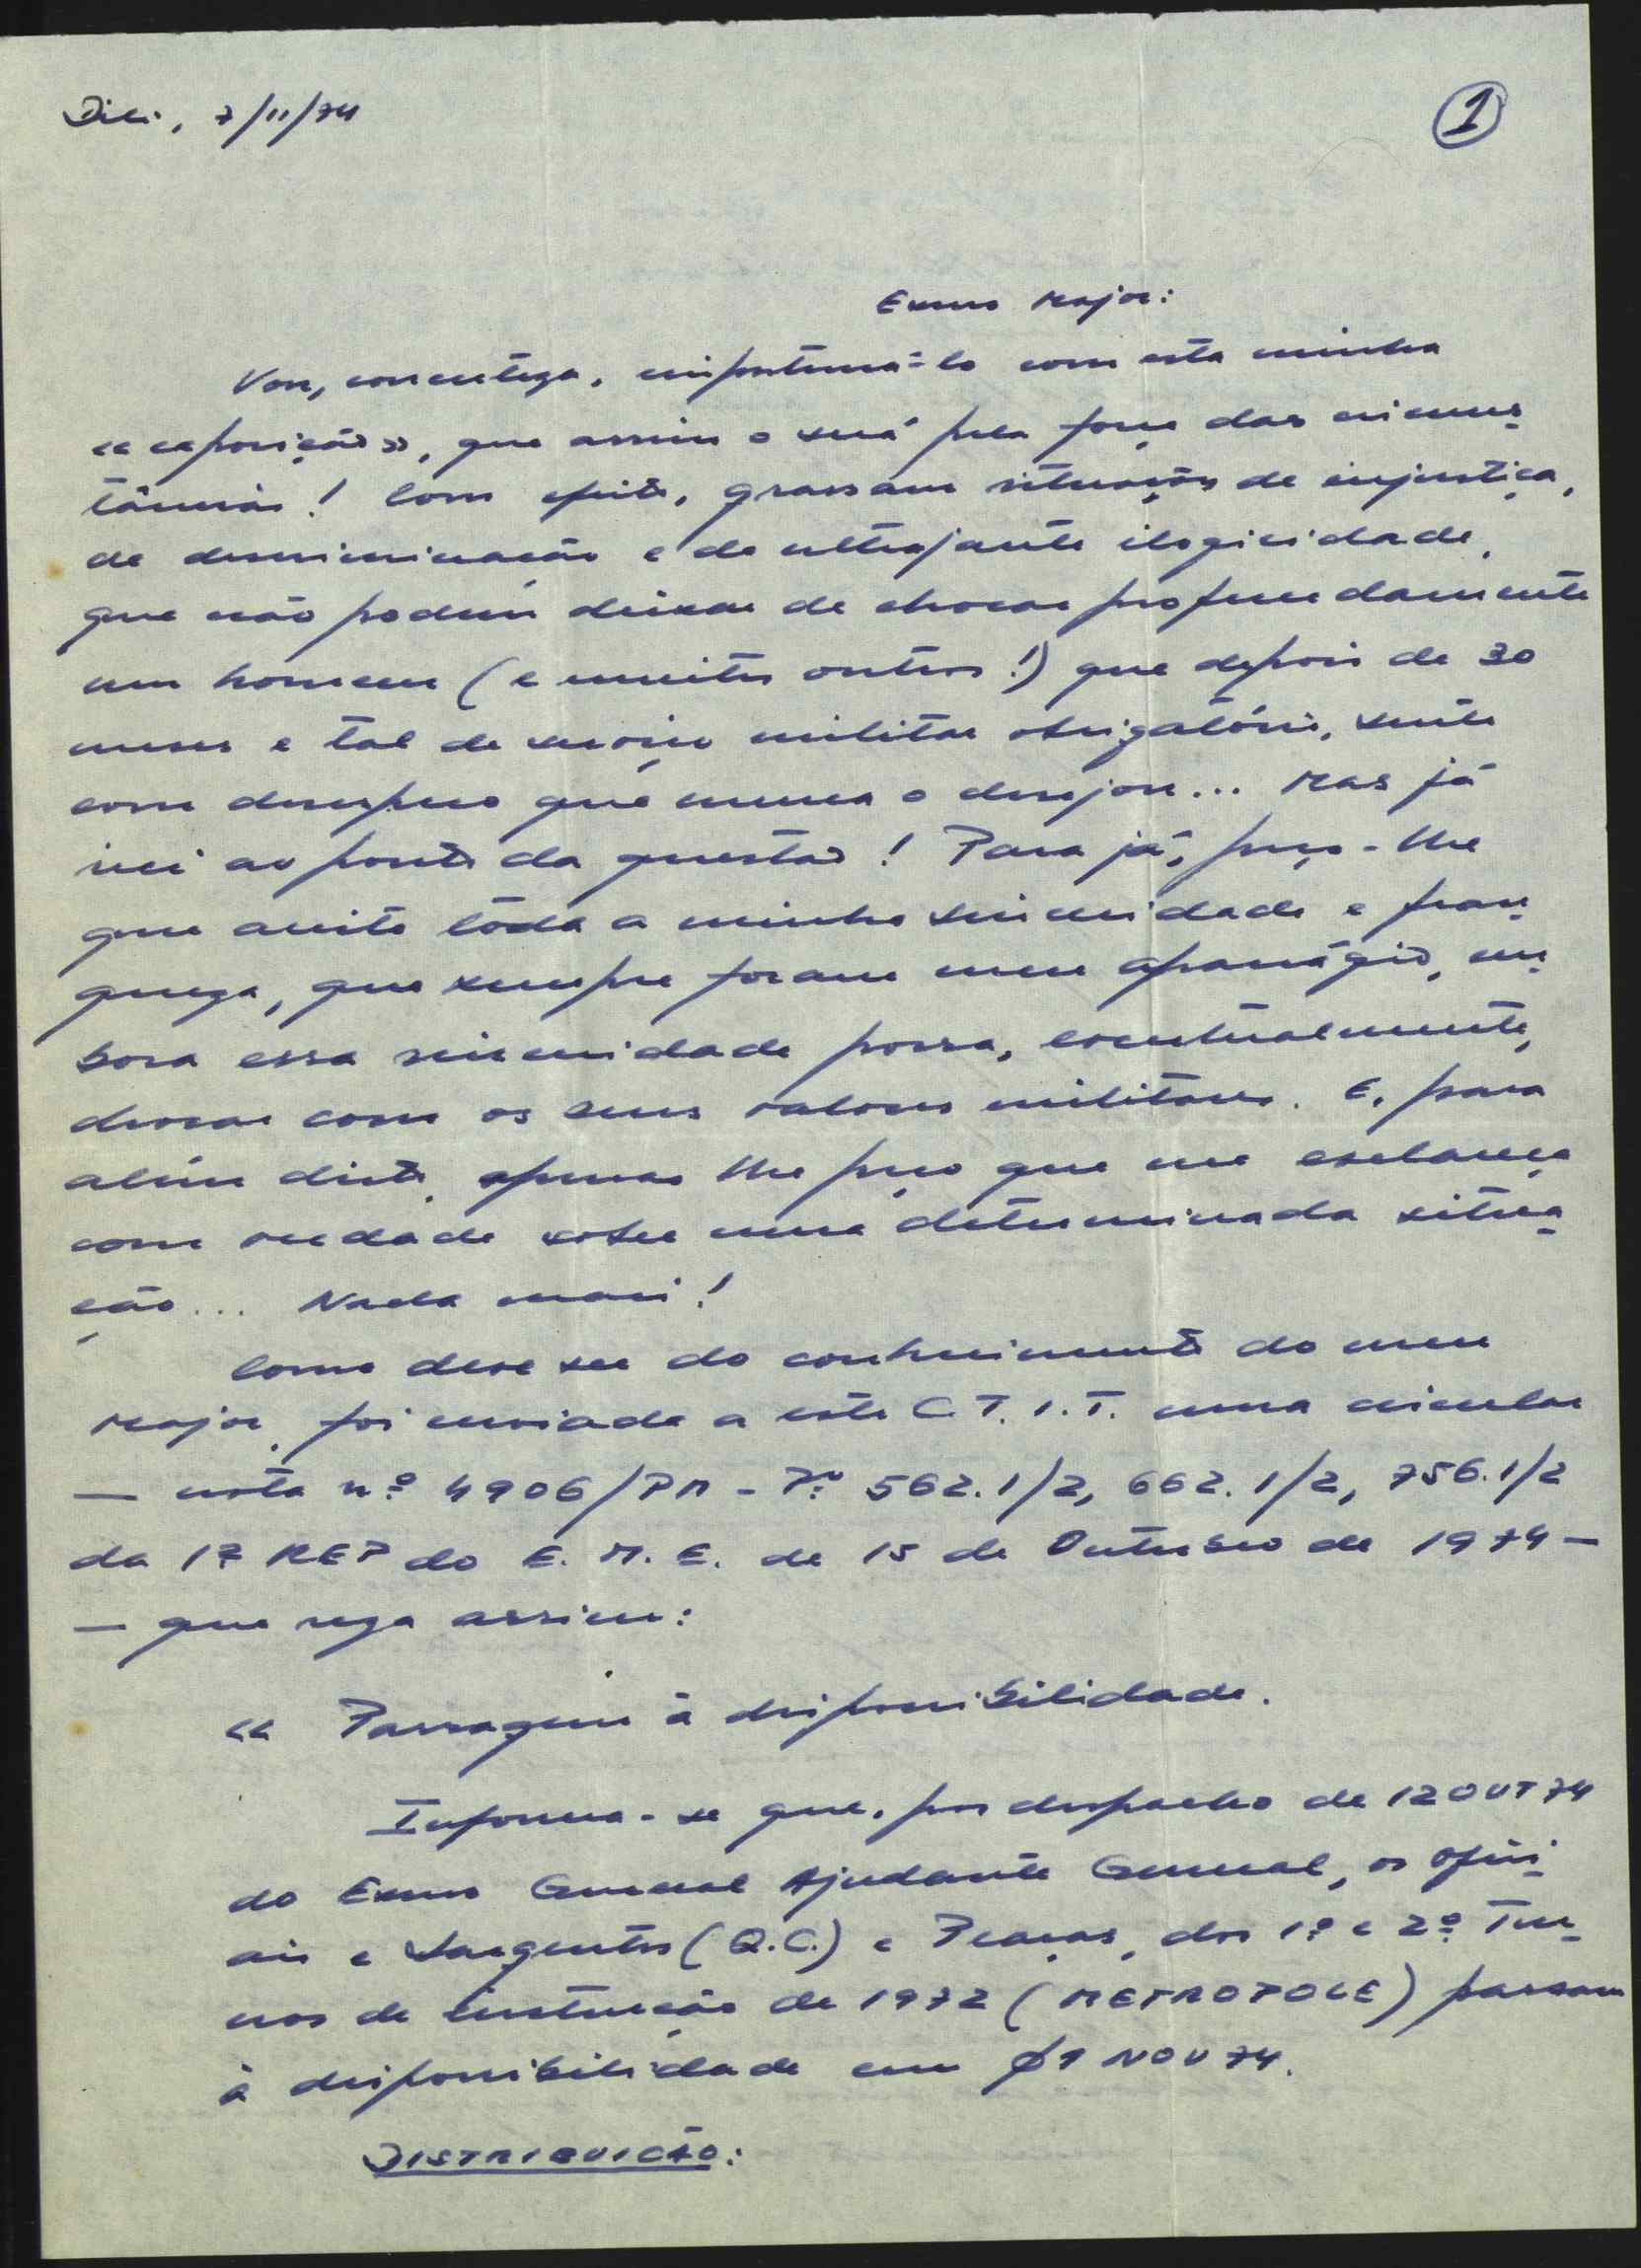 Dili, 7/11/74
1
Exmo Major:
Vou, com certeza, importuná-lo com esta minha
«exposição», que assim o será pela força das circuns-
tâncias! Com efeito, grassam situações de injustiça,
de descriminação e de ultrajante ilogicidade,
que não podem deixar de chocar profundamente
um homem (e muitos outros!) que depois de 30
meses e tal de serviço militar obrigatório, sente
com desespero que nunca o desejou... Mas já
irei ao ponto da questão! Para já, peço-lhe
que aceite toda a minha sinceridade e fran-
queza, que sempre foram meu apanágio, em-
bora essa sinceridade possa, eventualmente,
chocar com os seus valores militares. E, para
além disto, apenas lhe peço que me esclareça
com verdade sobre uma determinada situa-
ção... Nada mais!
Como deve ser do conhecimento do meu
Major, foi enviada a este C.T.I.T. uma circular
— nota nº 4906/PM - Pº 562.1/2, 662.1/2, 756.1/2
da 1ª REP do E.M.E. de 15 de Outubro de 1974 —
— que reza assim:
« Passagem à disponibilidade.
Informa-se que, por despacho de 12OUT74
do Exmo General Ajudante General, os ofici-
ais e Sargentos (Q.C.) e Praças, dos 1º e 2º Tur-
nos de instrução de 1972 (METROPOLE) passam
à disponibilidade em Ø1 NOV 74.
DISTRIBUIÇÃO: